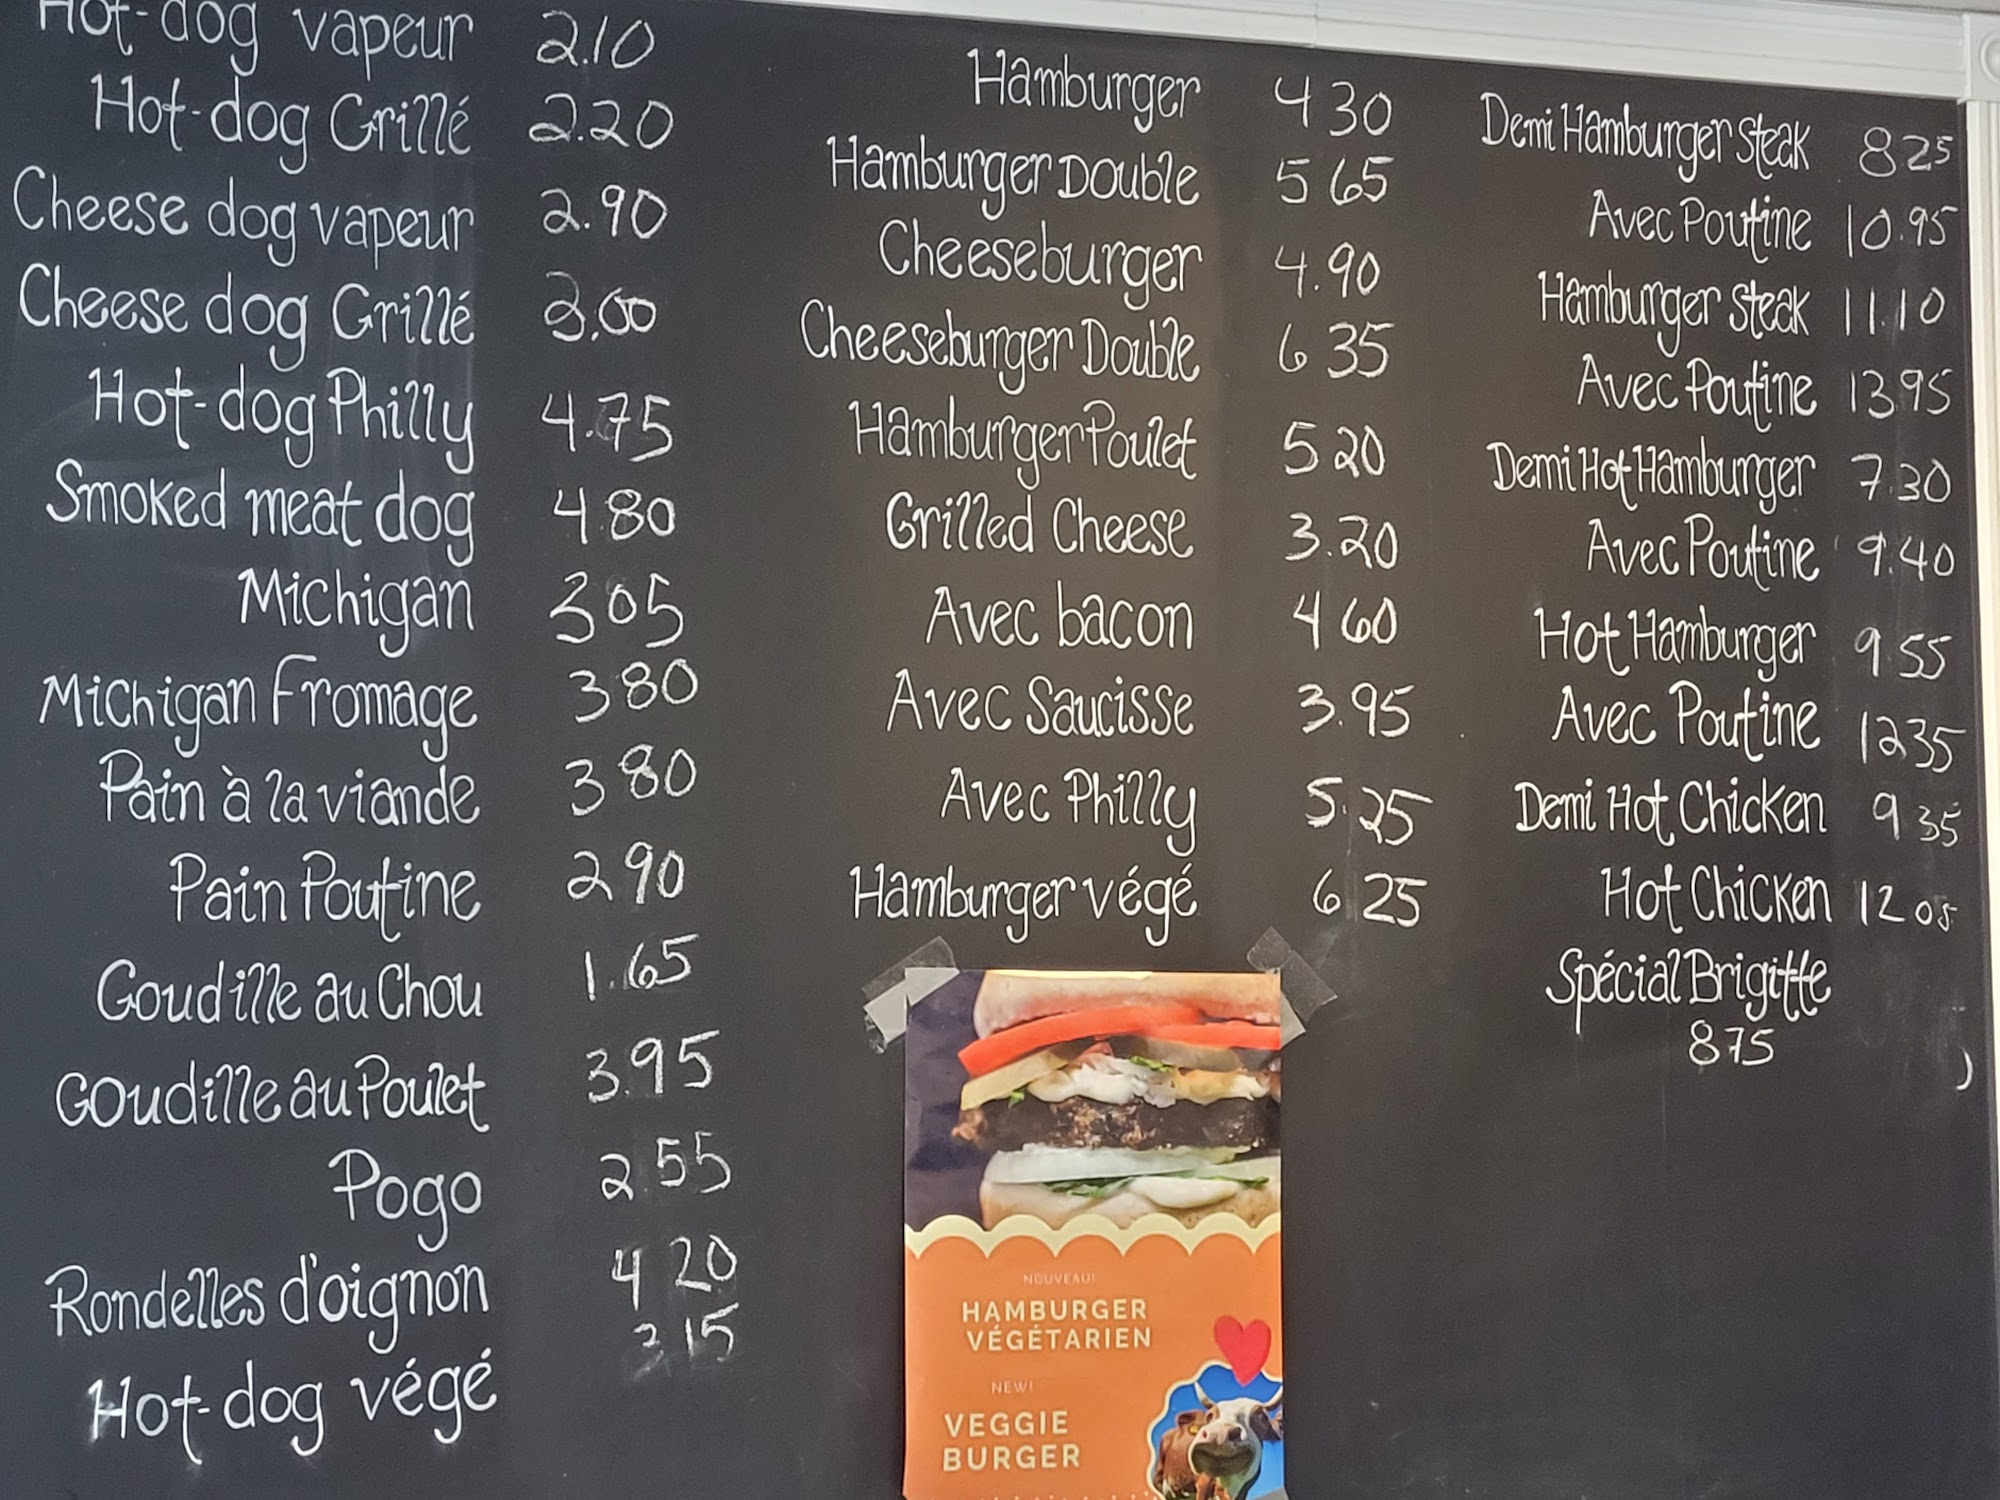 Hot-dog vapeur 2.10
Hot-dog Grillé 2.20
Cheese dog vapeur 2.90
Cheese dog Grillé 3.00
Hot-dog Philly 4.75
Smoked meat dog 4.80
Michigan 305
Michigan Fromage 380
Pain à la viande 380
Pain Poutine 290
Goudille au Chou 1.65
Goudille au Poulet 3.95
Pogo 2.55
Rondelles d'oignon 4 20
Hot-dog végé 3 15
Hamburger 4 30
Hamburger Double 5 65
Cheeseburger 4.90
Cheeseburger Double 6 35
Hamburger Poulet 5 20
Grilled Cheese 3.20
Avec bacon 4 60
Avec Saucisse 3.95
Avec Philly 5.25
Hamburger végé 6 25
NOUVEAU!
HAMBURGER
VÉGÉTARIEN
NEW!
VEGGIE
BURGER
Demi Hamburger Steak 8 25
Avec Poutine 10.95
Hamburger Steak 11.10
Avec Poutine 13 95
Demi Hot Hamburger 7.30
Avec Poutine 9.40
Hot Hamburger 9.55
Avec Poutine 12 35
Demi Hot Chicken 9 35
Hot Chicken 12 05
Spécial Brigitte
8 75